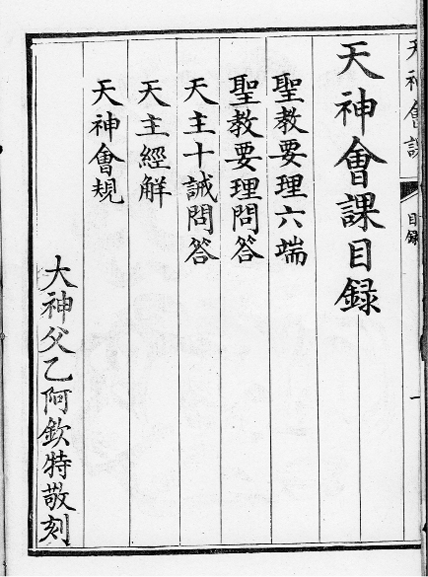 天神會課
目錄
一
天神會課目録
聖教要理六端
聖教要理問答
天主十誡問答
天主經解
天神會規
大神父乙阿欽特敬刻